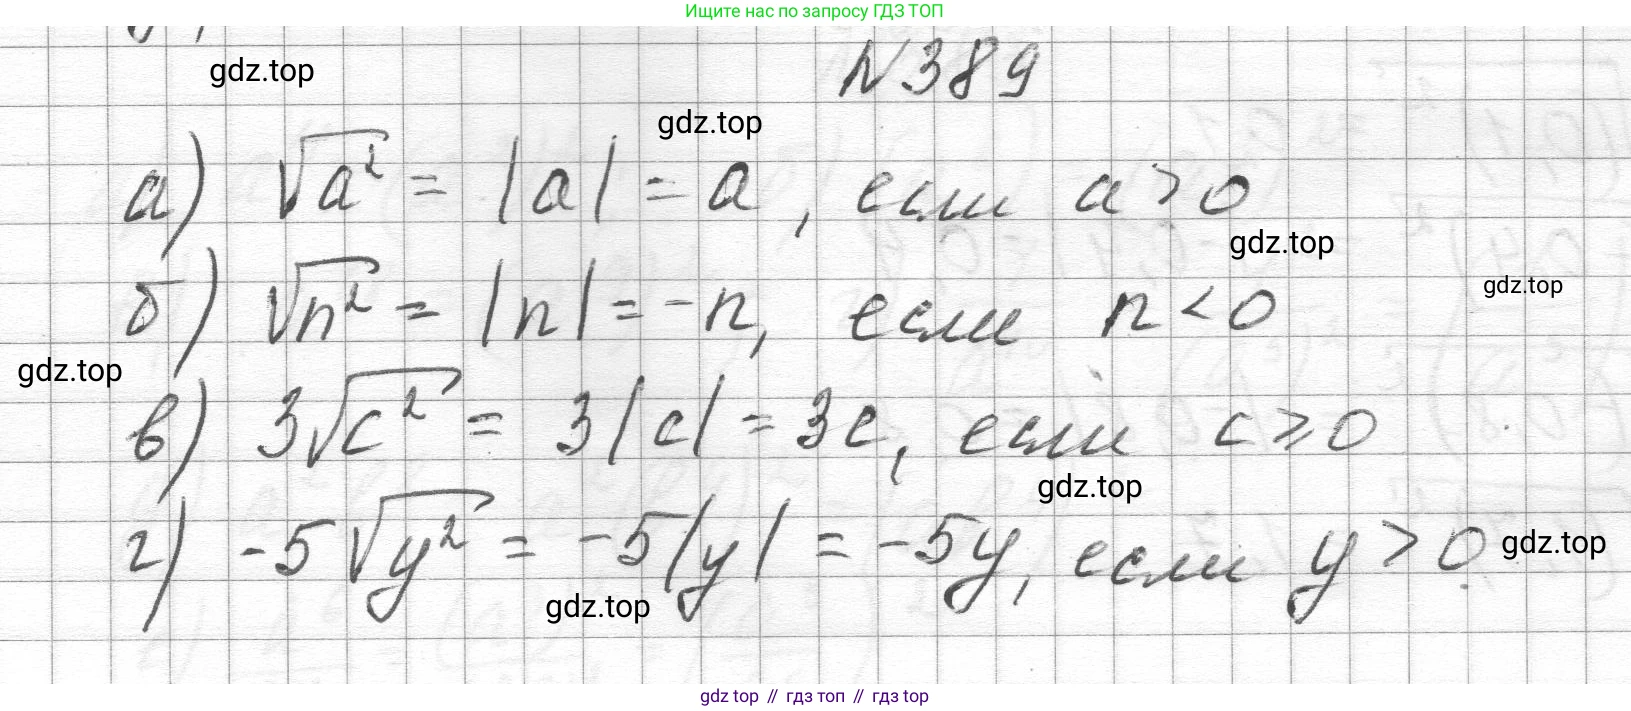 Ищите нас по запросу ГДЗ ТОП
N 389
gdz.top
gdz.top
а) √a² = |a| = a, если a > 0
gdz.top
б) √n² = |n| = -n, если n < 0
gdz.top
gdz.top
в) 3√c² = 3|c| = 3c, если c ≥ 0
gdz.top
г) -5√y² = -5|y| = -5y, если y > 0
gdz.top
gdz.top
gdz top // гдз топ // гдз top